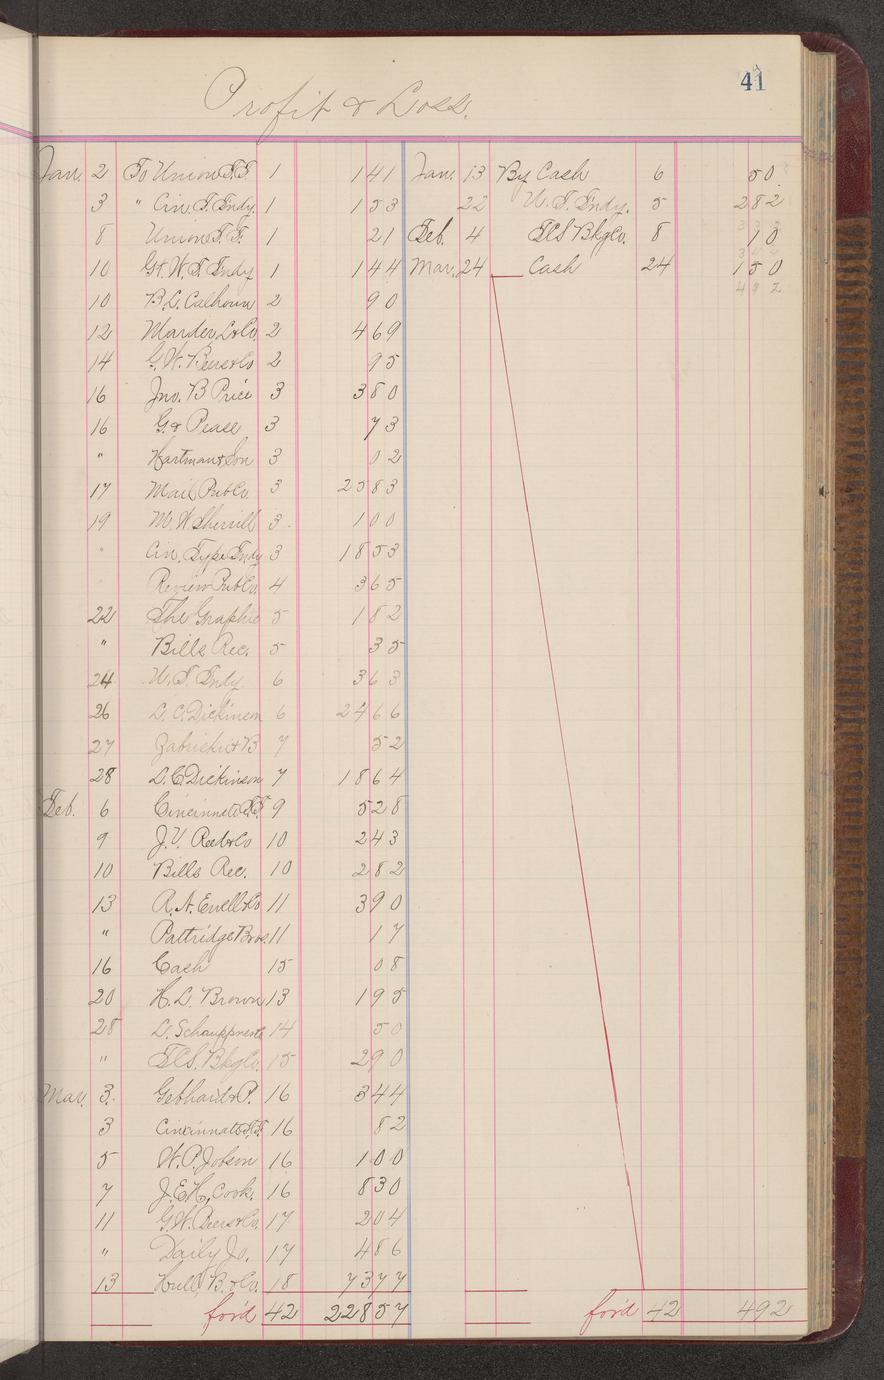 41
Profit & Loss.
Jan. 2 To Union T.F. 1 1 41 Jan. 13 By Cash 6 50
3 " Cin. T. Fndy. 1 1 53 22 U. T. Fndy. 5 2 82
8 Union T.F. 1 21 Feb. 4 Bkg Co. 8 10
10 Gt. W. T. Fndy 1 1 44 Mar. 24 Cash 24 1 50
10 B. L. Calhoun 2 90 4 92
12 Marder, L & Co. 2 4 69
14 G. W. & Co 2 95
16 Jno. B Price 3 3 80
16 G. & Pease 3 73
" Hartman & Son 3 02
17 Mail Pub Co. 3 25 83
19 M. W Sherrill 3 1 00
" Cin. Type Fndy 3 18 53
Review Pub Co. 4 3 65
22 The Graphic 5 1 82
" Bills Rec. 5 35
24 U. T. Fndy. 6 3 63
26 L. C. Dickinson 6 24 66
27 Zabriskie & B 7 52
28 L. C. Dickinson 7 18 64
Feb. 6 Cincinnati T.F. 9 5 28
9 J. V. & Co 10 2 43
10 Bills Rec. 10 2 82
13 R. A. & Co 11 3 90
" Pattridge Bros. 11 17
16 Cash 15 08
20 H. L. Brown 13 1 95
28 L. 14 50
" Bkg Co. 15 2 90
Mar. 3. Gebhard & P. 16 3 44
3 Cincinnati T.F. 16 82
5 W. P. Jobson 16 1 00
7 J. E. H. Cook. 16 8 30
11 G. W. & Co. 17 2 04
" Daily Jo. 17 4 86
13 Hull, B. & Co. 18 73 77
for'd 42 228 57 for'd 42 4 92